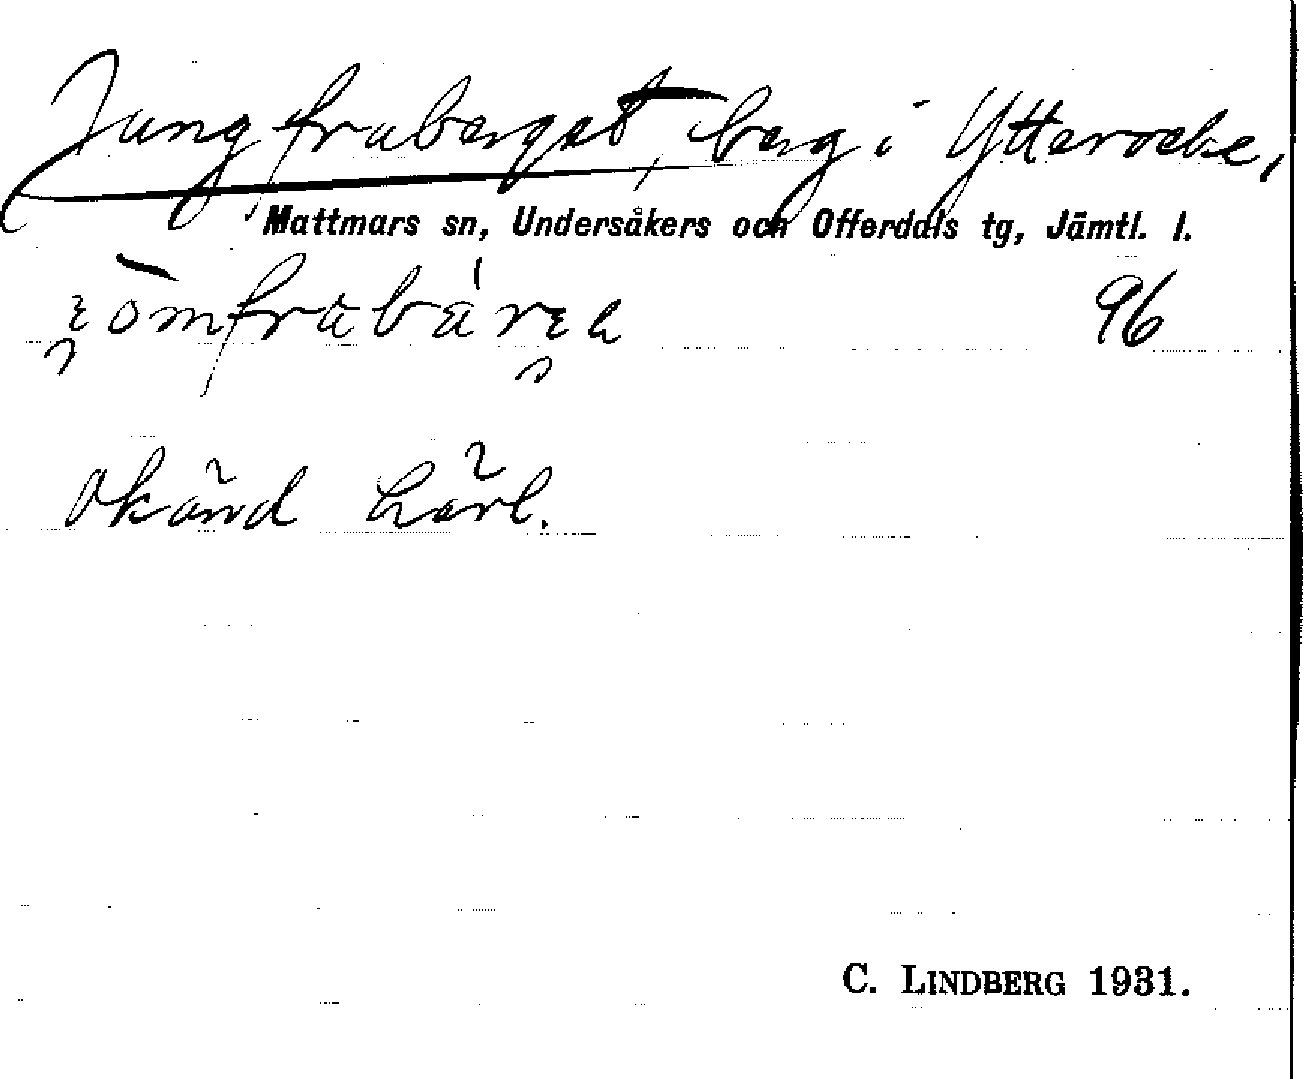 Jungfruberget, berg i Ytterocke,
Mattmars sn, Undersåkers och Offerdals tg, Jämtl. l.
96
Okänd härl.
C. LINDBERG 1931.